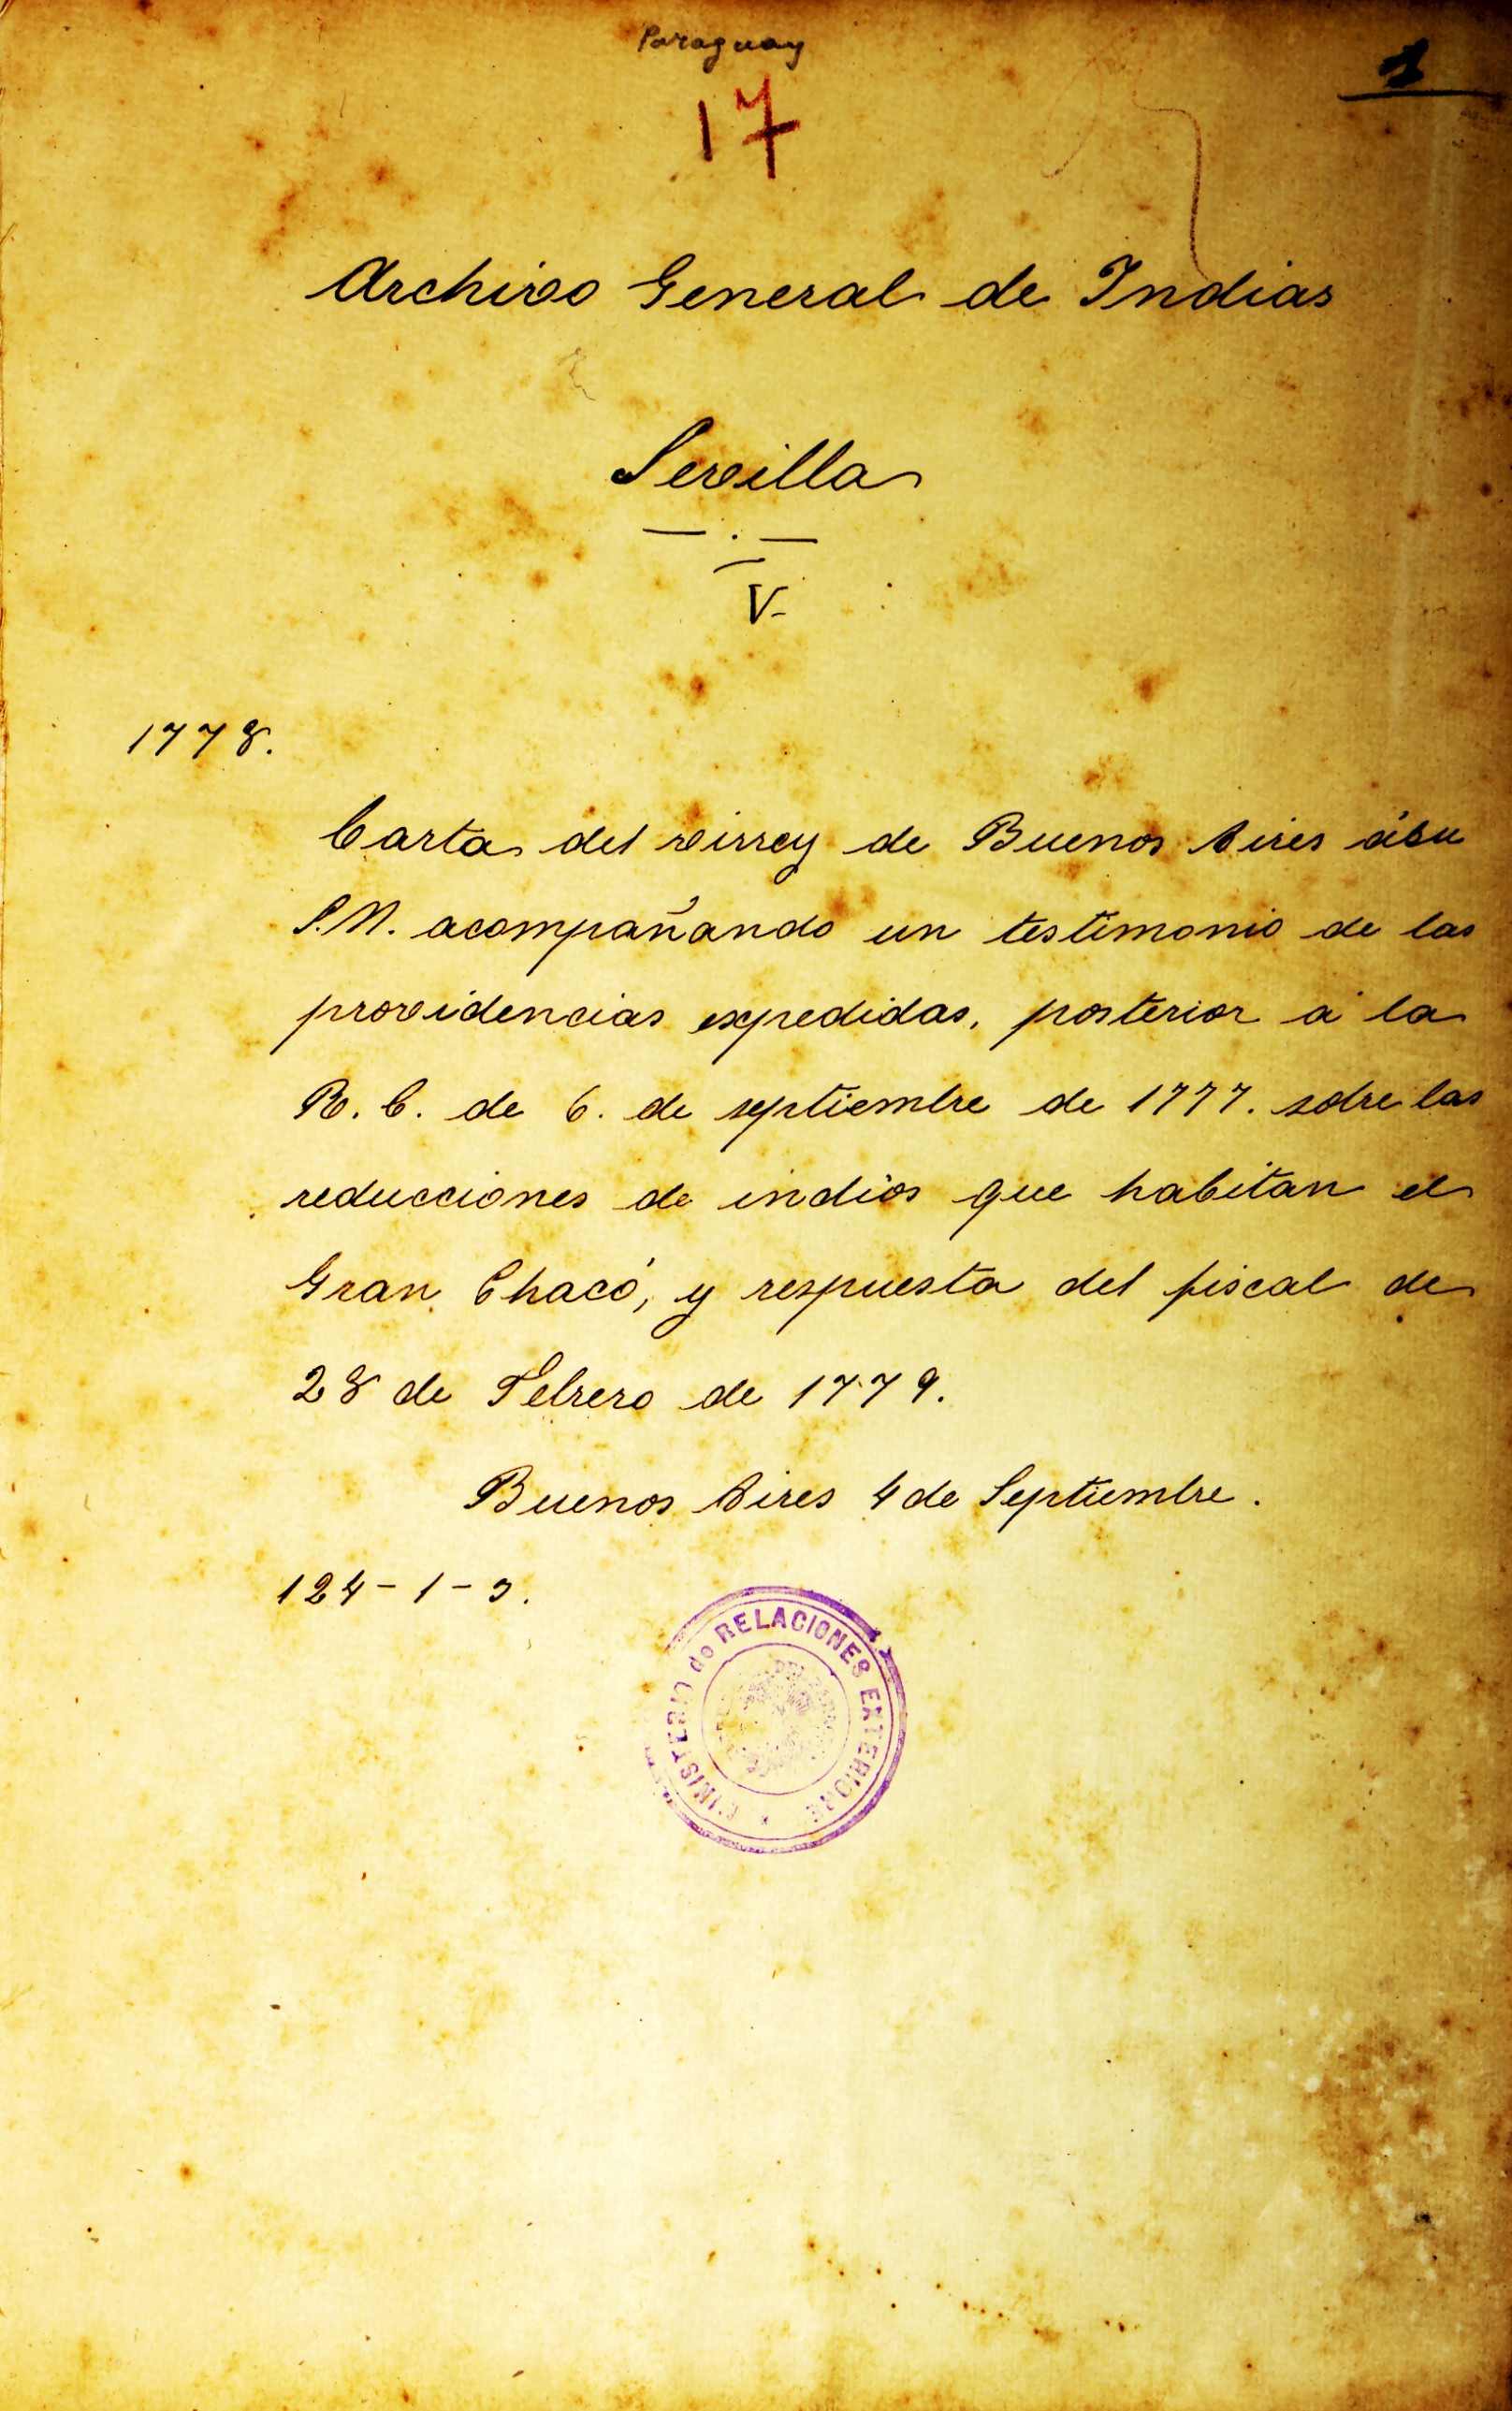 Paraguay
1
17
Archivo General de Indias
Sevilla
V-
1778.
Carta del virrey de Buenos Aires á su
S.M. acompañando un testimonio de las
providencias expedidas, posterior á la
R. C. de 6. de septiembre de 1777. sobre las
reducciones de indios que habitan el
Gran Chacó, y respuesta del fiscal de
28 de Febrero de 1779.
Buenos Aires 4 de Septiembre.
124-1-3.
MINISTERIO de RELACIONES EXTERIORES